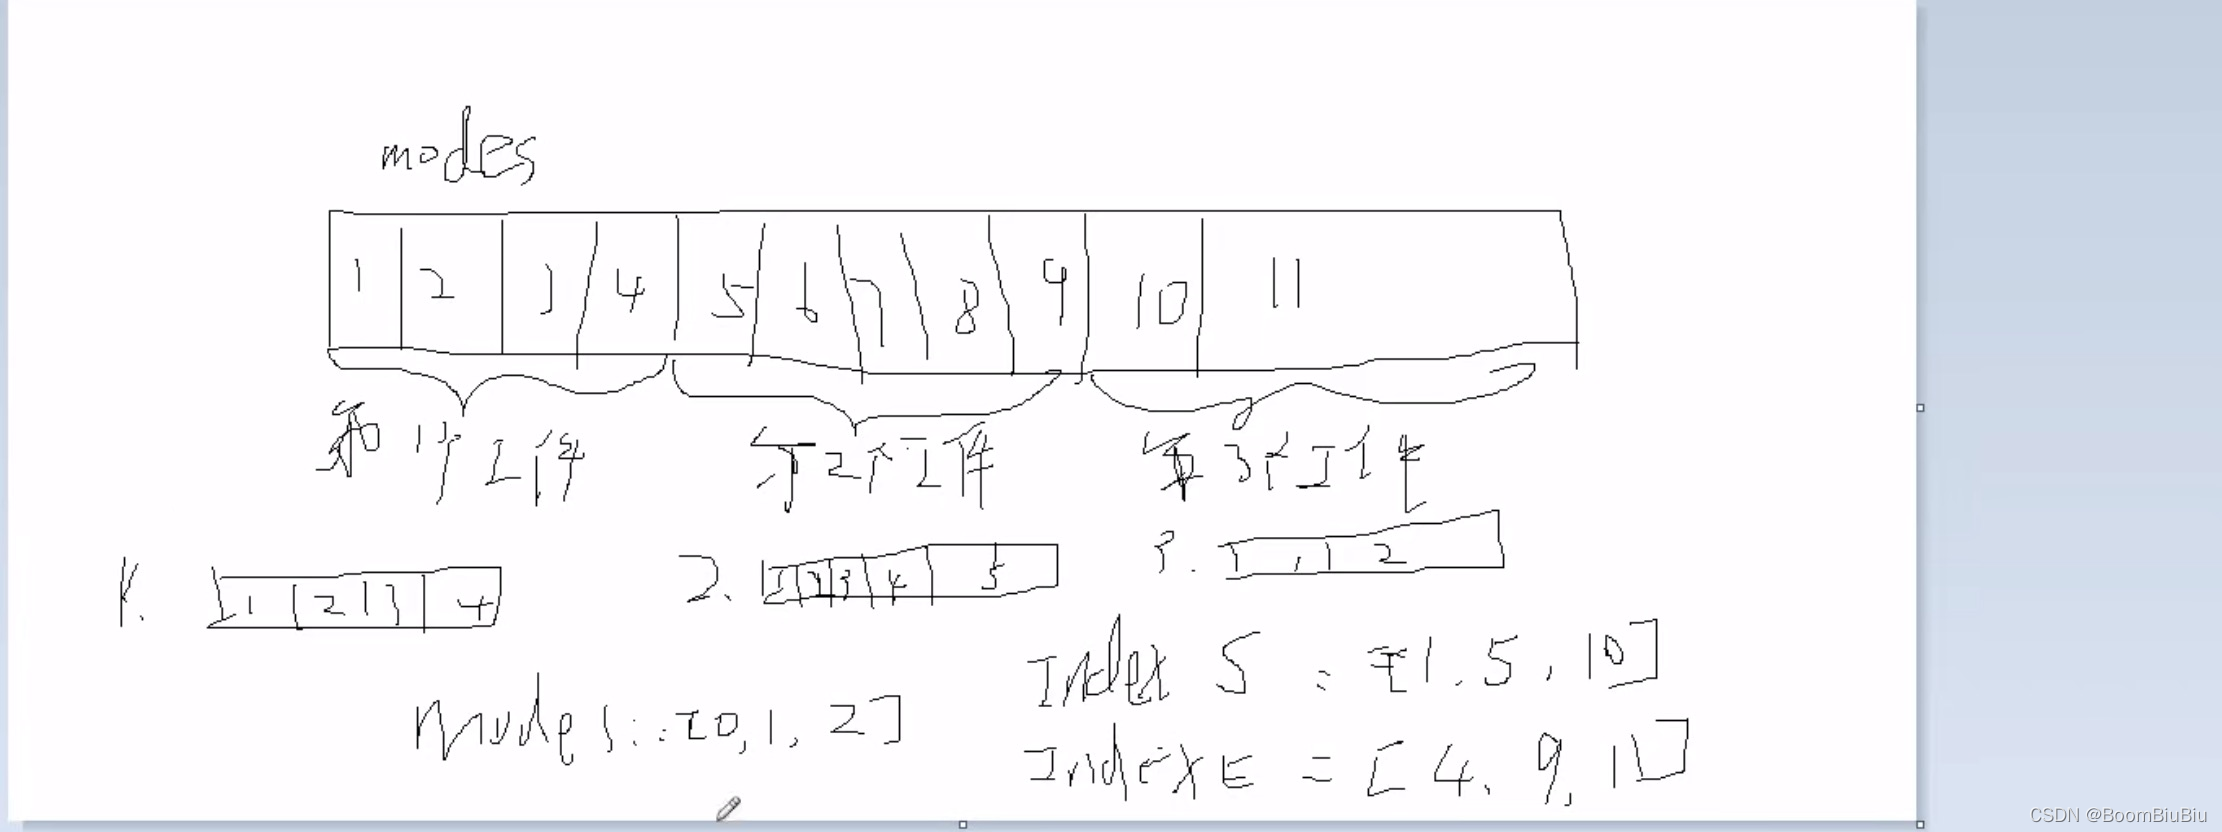 modes
1 2 3 4 5 6 7 8 9 10 11
第1个工件 第2个工件 第3个工件
1. 1 2 3 4
2. 1 2 3 4 5
3. 1 2
Index S = [1, 5, 10]
modes: [0, 1, 2]
Index E = [4, 9, 11]
CSDN @BoomBiuBiu